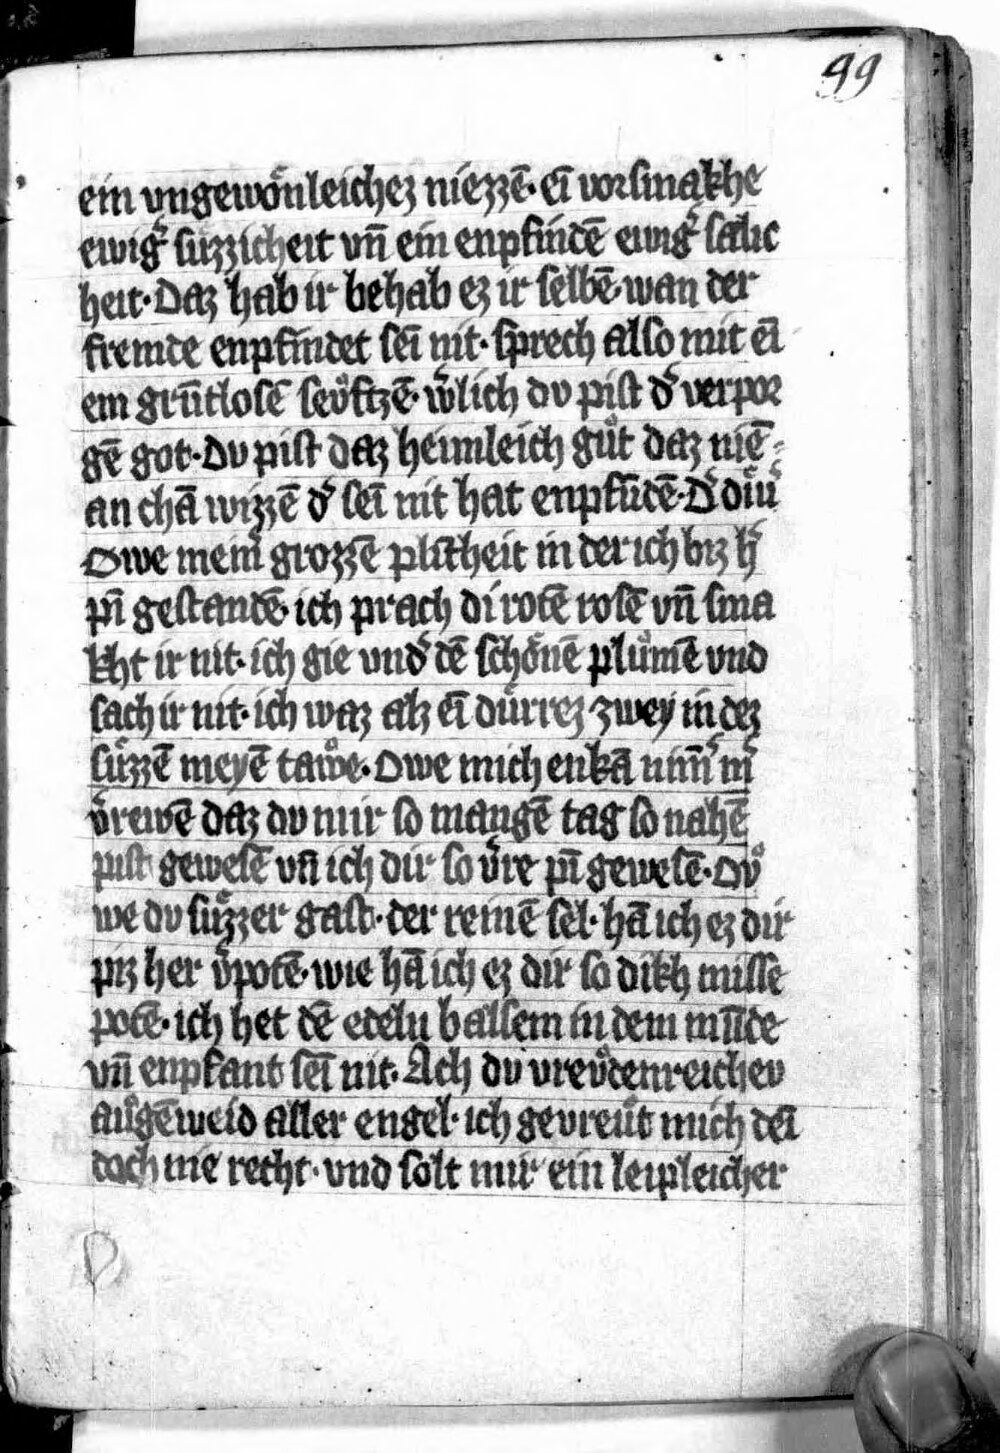 99
ein vngewoͤnleichez niezzē· eī vorsmakhe
ewigͬ suͤzzicheit vn̄ ein enpfindē ewigͬ sälic
heit· Daz hab ir behab ez ir selbē· wan der
fremde enpfindet seī nit· sprech also mit eī
em gru̅tlosē seuͦftzē· w̾lich dv pist d̾ verpor
gē got· Dv pist daz heimleich guͦt daz niē⸗
an chā wizzē d̾ seī nit hat enpfu̅dē· D̾
Owe mein̾ grozzē pli̅theit in der ich biz h̾
pī gestandē· ich prach di rotē rosē vn̄ sma
kht ir nit· ich gie vnd̾ dē schoͤnē pluͦmē vnd
sach ir nit· ich waz alz eī duͤrrez zwey in dez
suͤzzē meyē tawͦe· Owe mich enkā nim̄̾ m̾
v̾rewē daz dv mir so mangē tag so nahē
pist gewesē vn̄ ich dir so v̾re pī gewesē· Ovͦ
we dv suͤzzer gast· der reinē sel· hā ich ez dir
piz her v̾potē· wie hā ich ez dir so dikh misse
potē· ich het dē edeln balsem in dem mu̅de
vn̄ enpfant seī nit· Ach dv vrevͦdenreichev
auͦgēweid aller engel· ich gevreuͦt mich deī
doch nie recht· vnd solt mir ein leipleicher